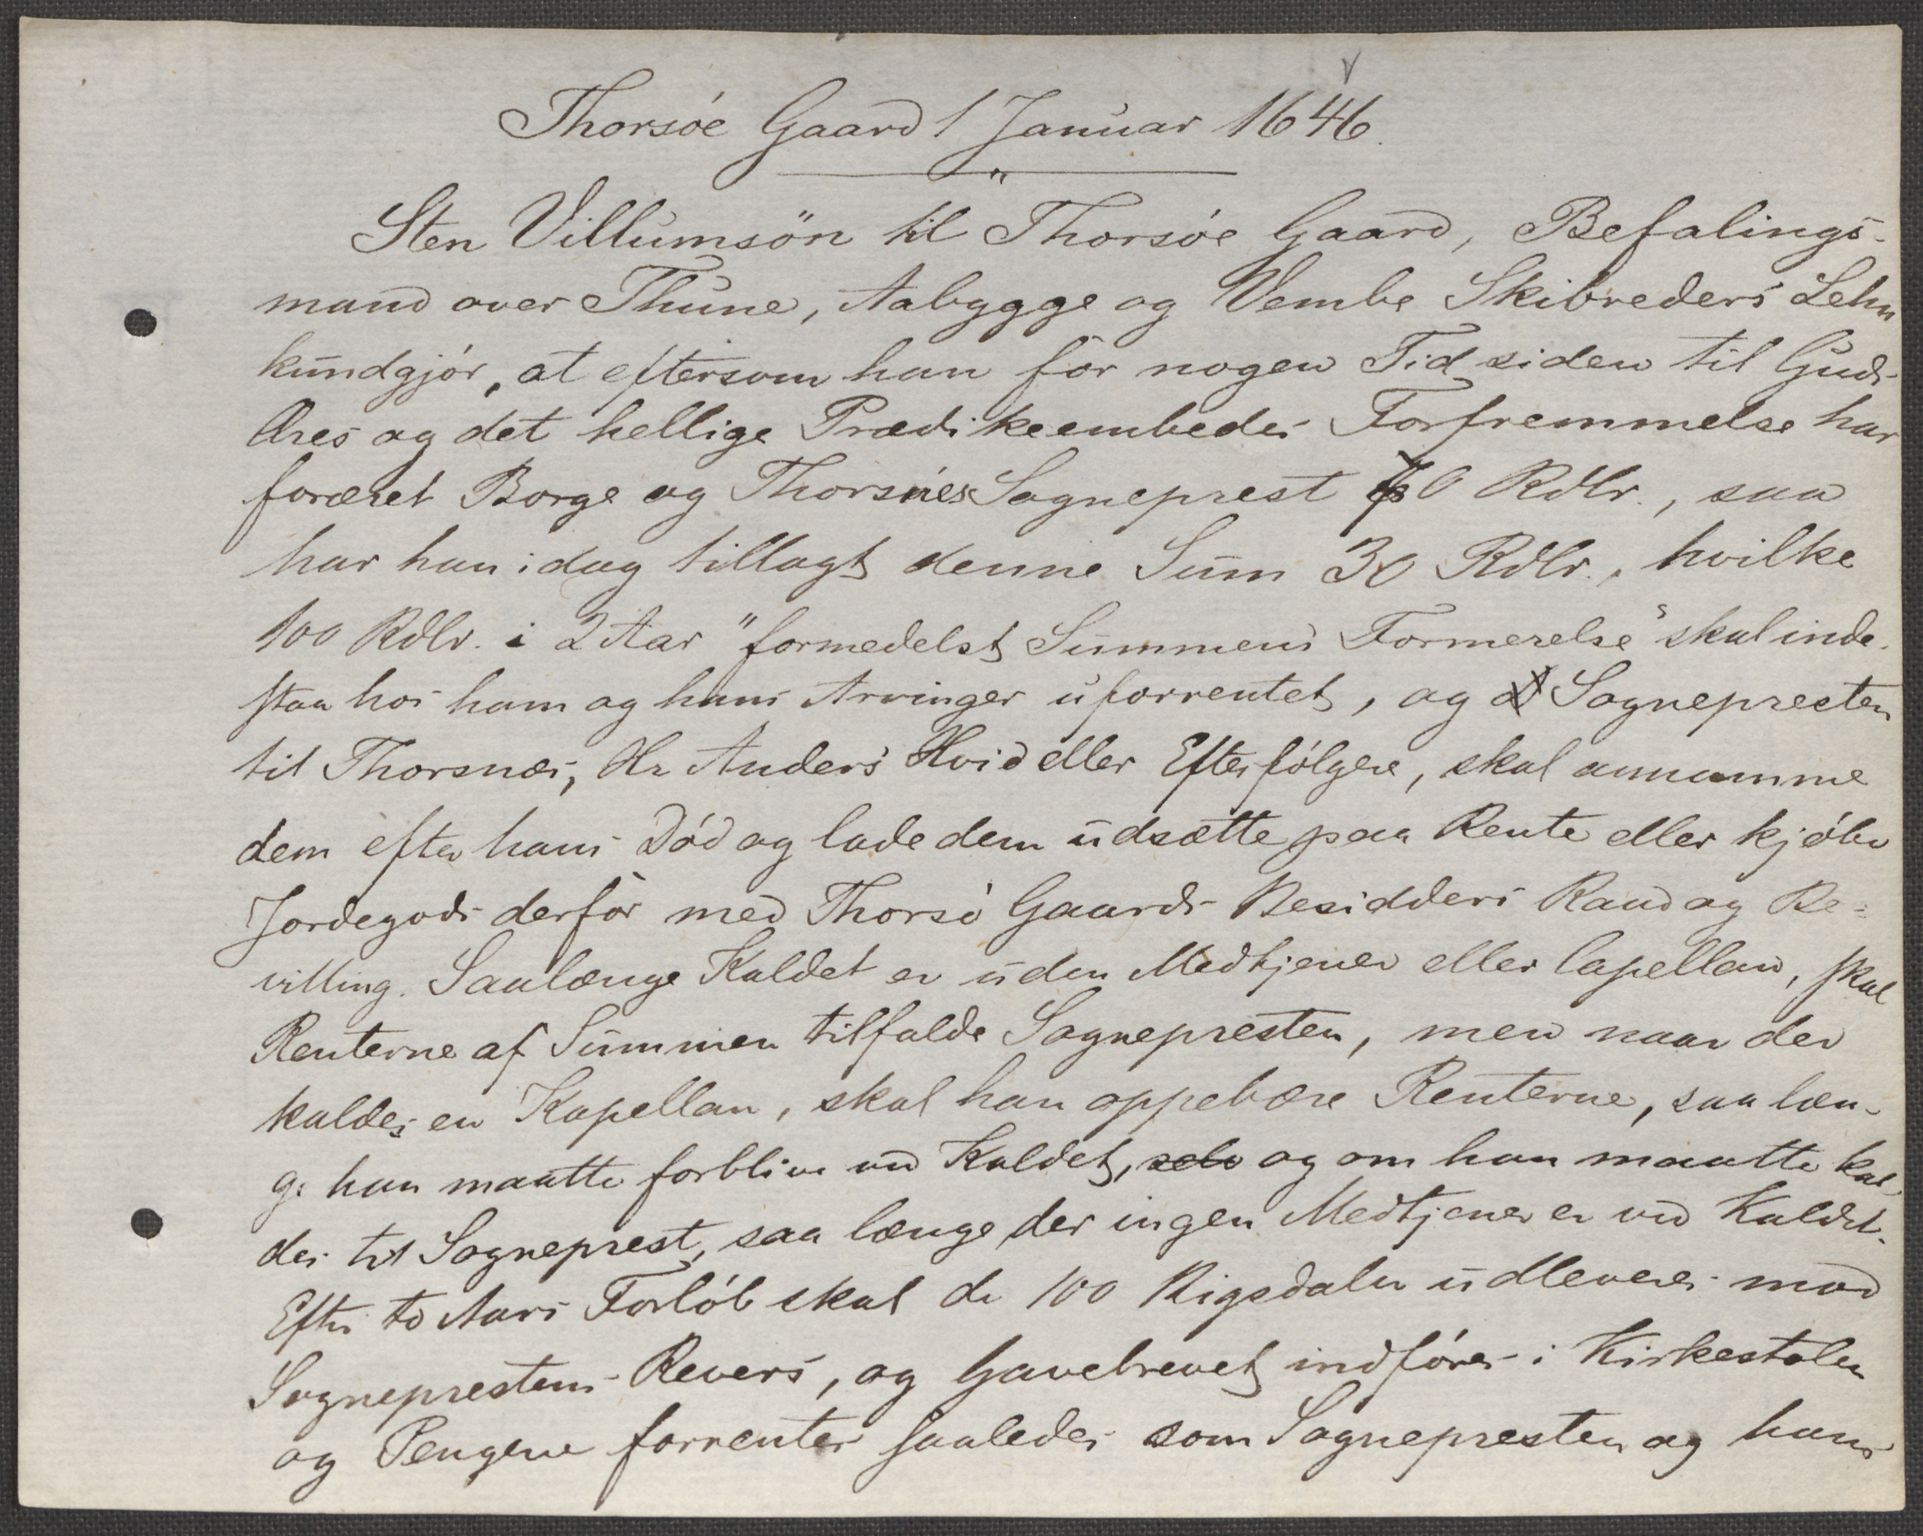 Thorsøe Gaard 1 Januar 1646.
Sten Villumsön til Thorsøe Gaard, Befalings-
mand over Thune, Aabygge og Vembe Skibreders Lehn
kundgjør, at eftersom han før nogen Tid siden til Guds
Æres og det hellige Prædikeembedes Forfremmelse har
foræret Borge og Thorsnes Sogneprest 70 Rdlr., saa
har han idag tillagt denne Sum 30 Rdlr., hvilke
100 Rdlr. i 2 Aar "formedelst Summens Formerelse" skal inde-
staa hos ham og hans Arvinger uforrentet, og Sognepresten
til Thorsnæs, Hr Anders Hvid eller Efterfølgere, skal annamme
dem efter hans Død og lade dem udsætte paa Rente eller kjøbe
Jordegods derfor med Thorsø Gaards Besidders Raad og Be-
villing. Saalænge Kaldet er uden Medtjener eller Capellan, skal
Renterne af Summen tilfalde Sognepresten, men naar der
kaldes en Kapellan, skal han oppebære Renterne, saa læn-
ge han maatte forblive ved Kaldet, selv og om han maatte kal-
des til Sogneprest, saa længe der ingen Medtjener er ved Kaldet.
Efter to Aars Forløb skal de 100 Rigsdaler udleveres mod
Sogneprestens Revers, og Gavebrevet indføres i Kirkestolen
og Pengene forrentes saaledes som Sognepresten og hans